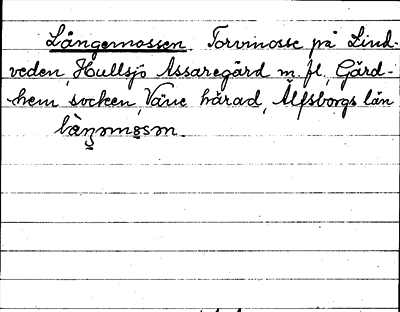 Långemossen. Torvmosse på Lind-
veden, Hullsjö Assaregård m. fl, Gärd-
hem socken, Väne härad, Älfsborgs län